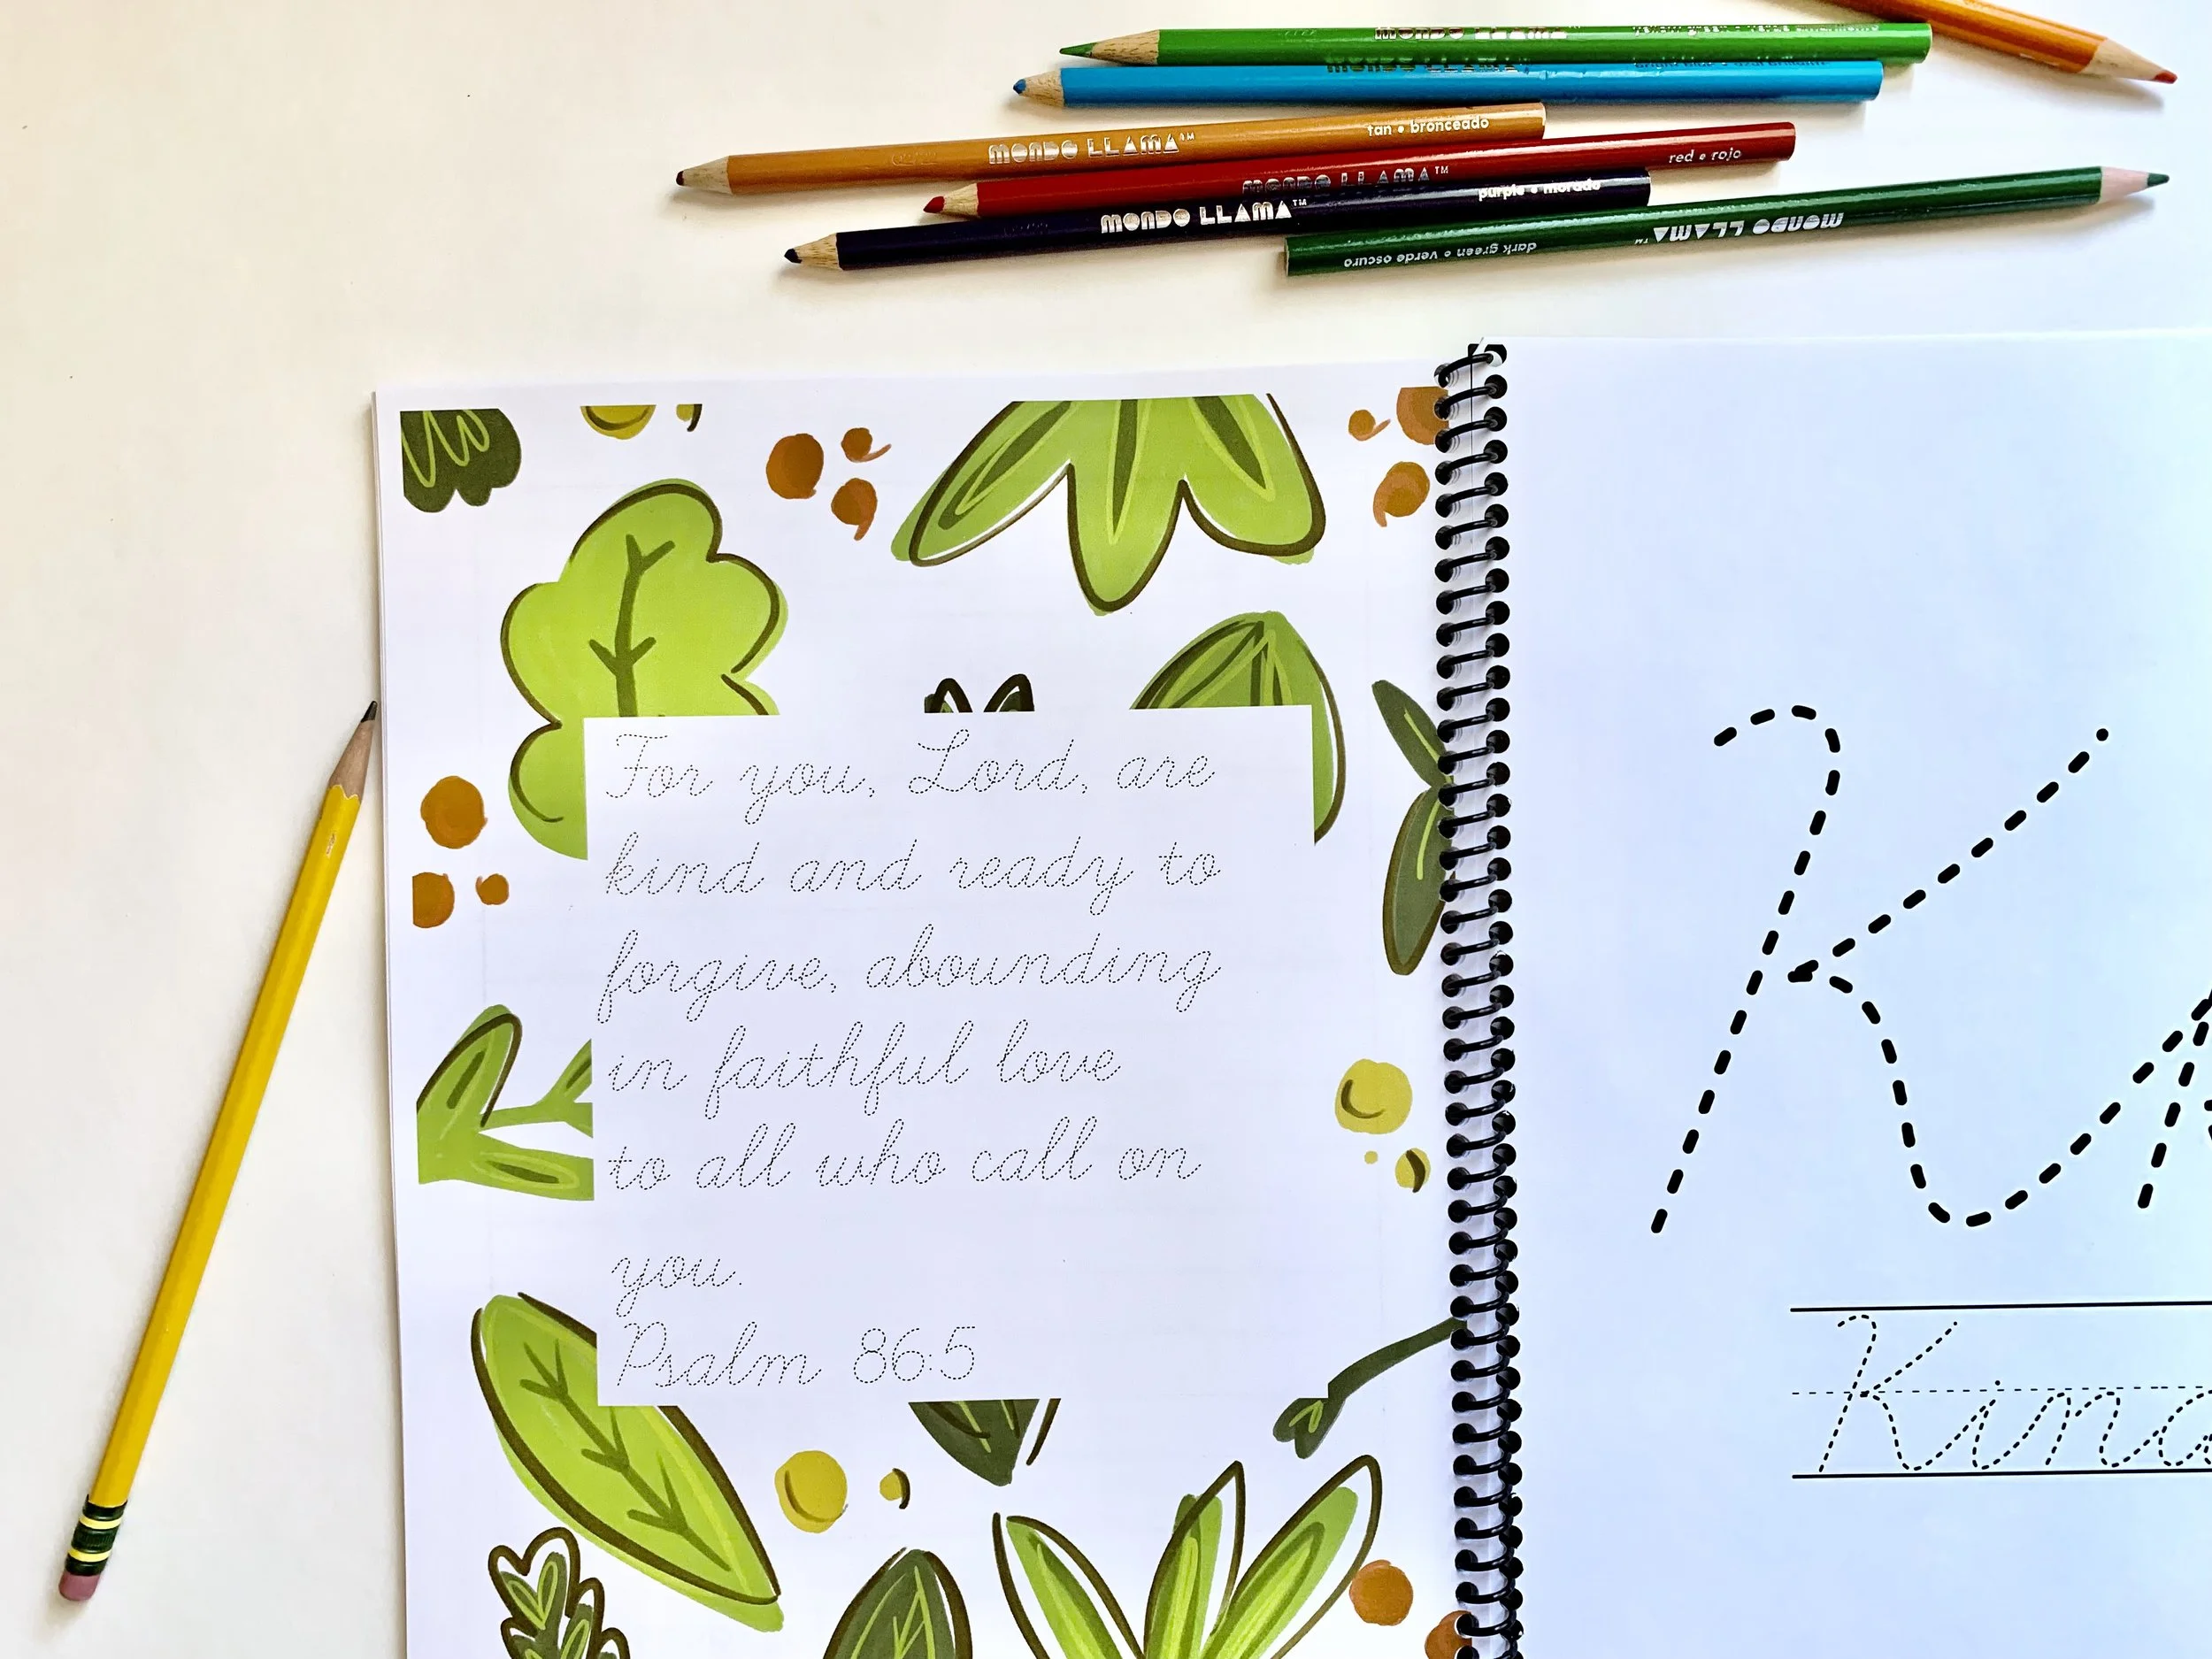 MONDO LLAMA™
MONDO LLAMA™
MONDO LLAMA™ tan • bronceado
MONDO LLAMA™ red • rojo
MONDO LLAMA™ purple • morado
MONDO LLAMA™ dark green • verde oscuro
For you, Lord, are
kind and ready to
forgive, abounding
in faithful love
to all who call on
you.
Psalm 86:5
K
Kind